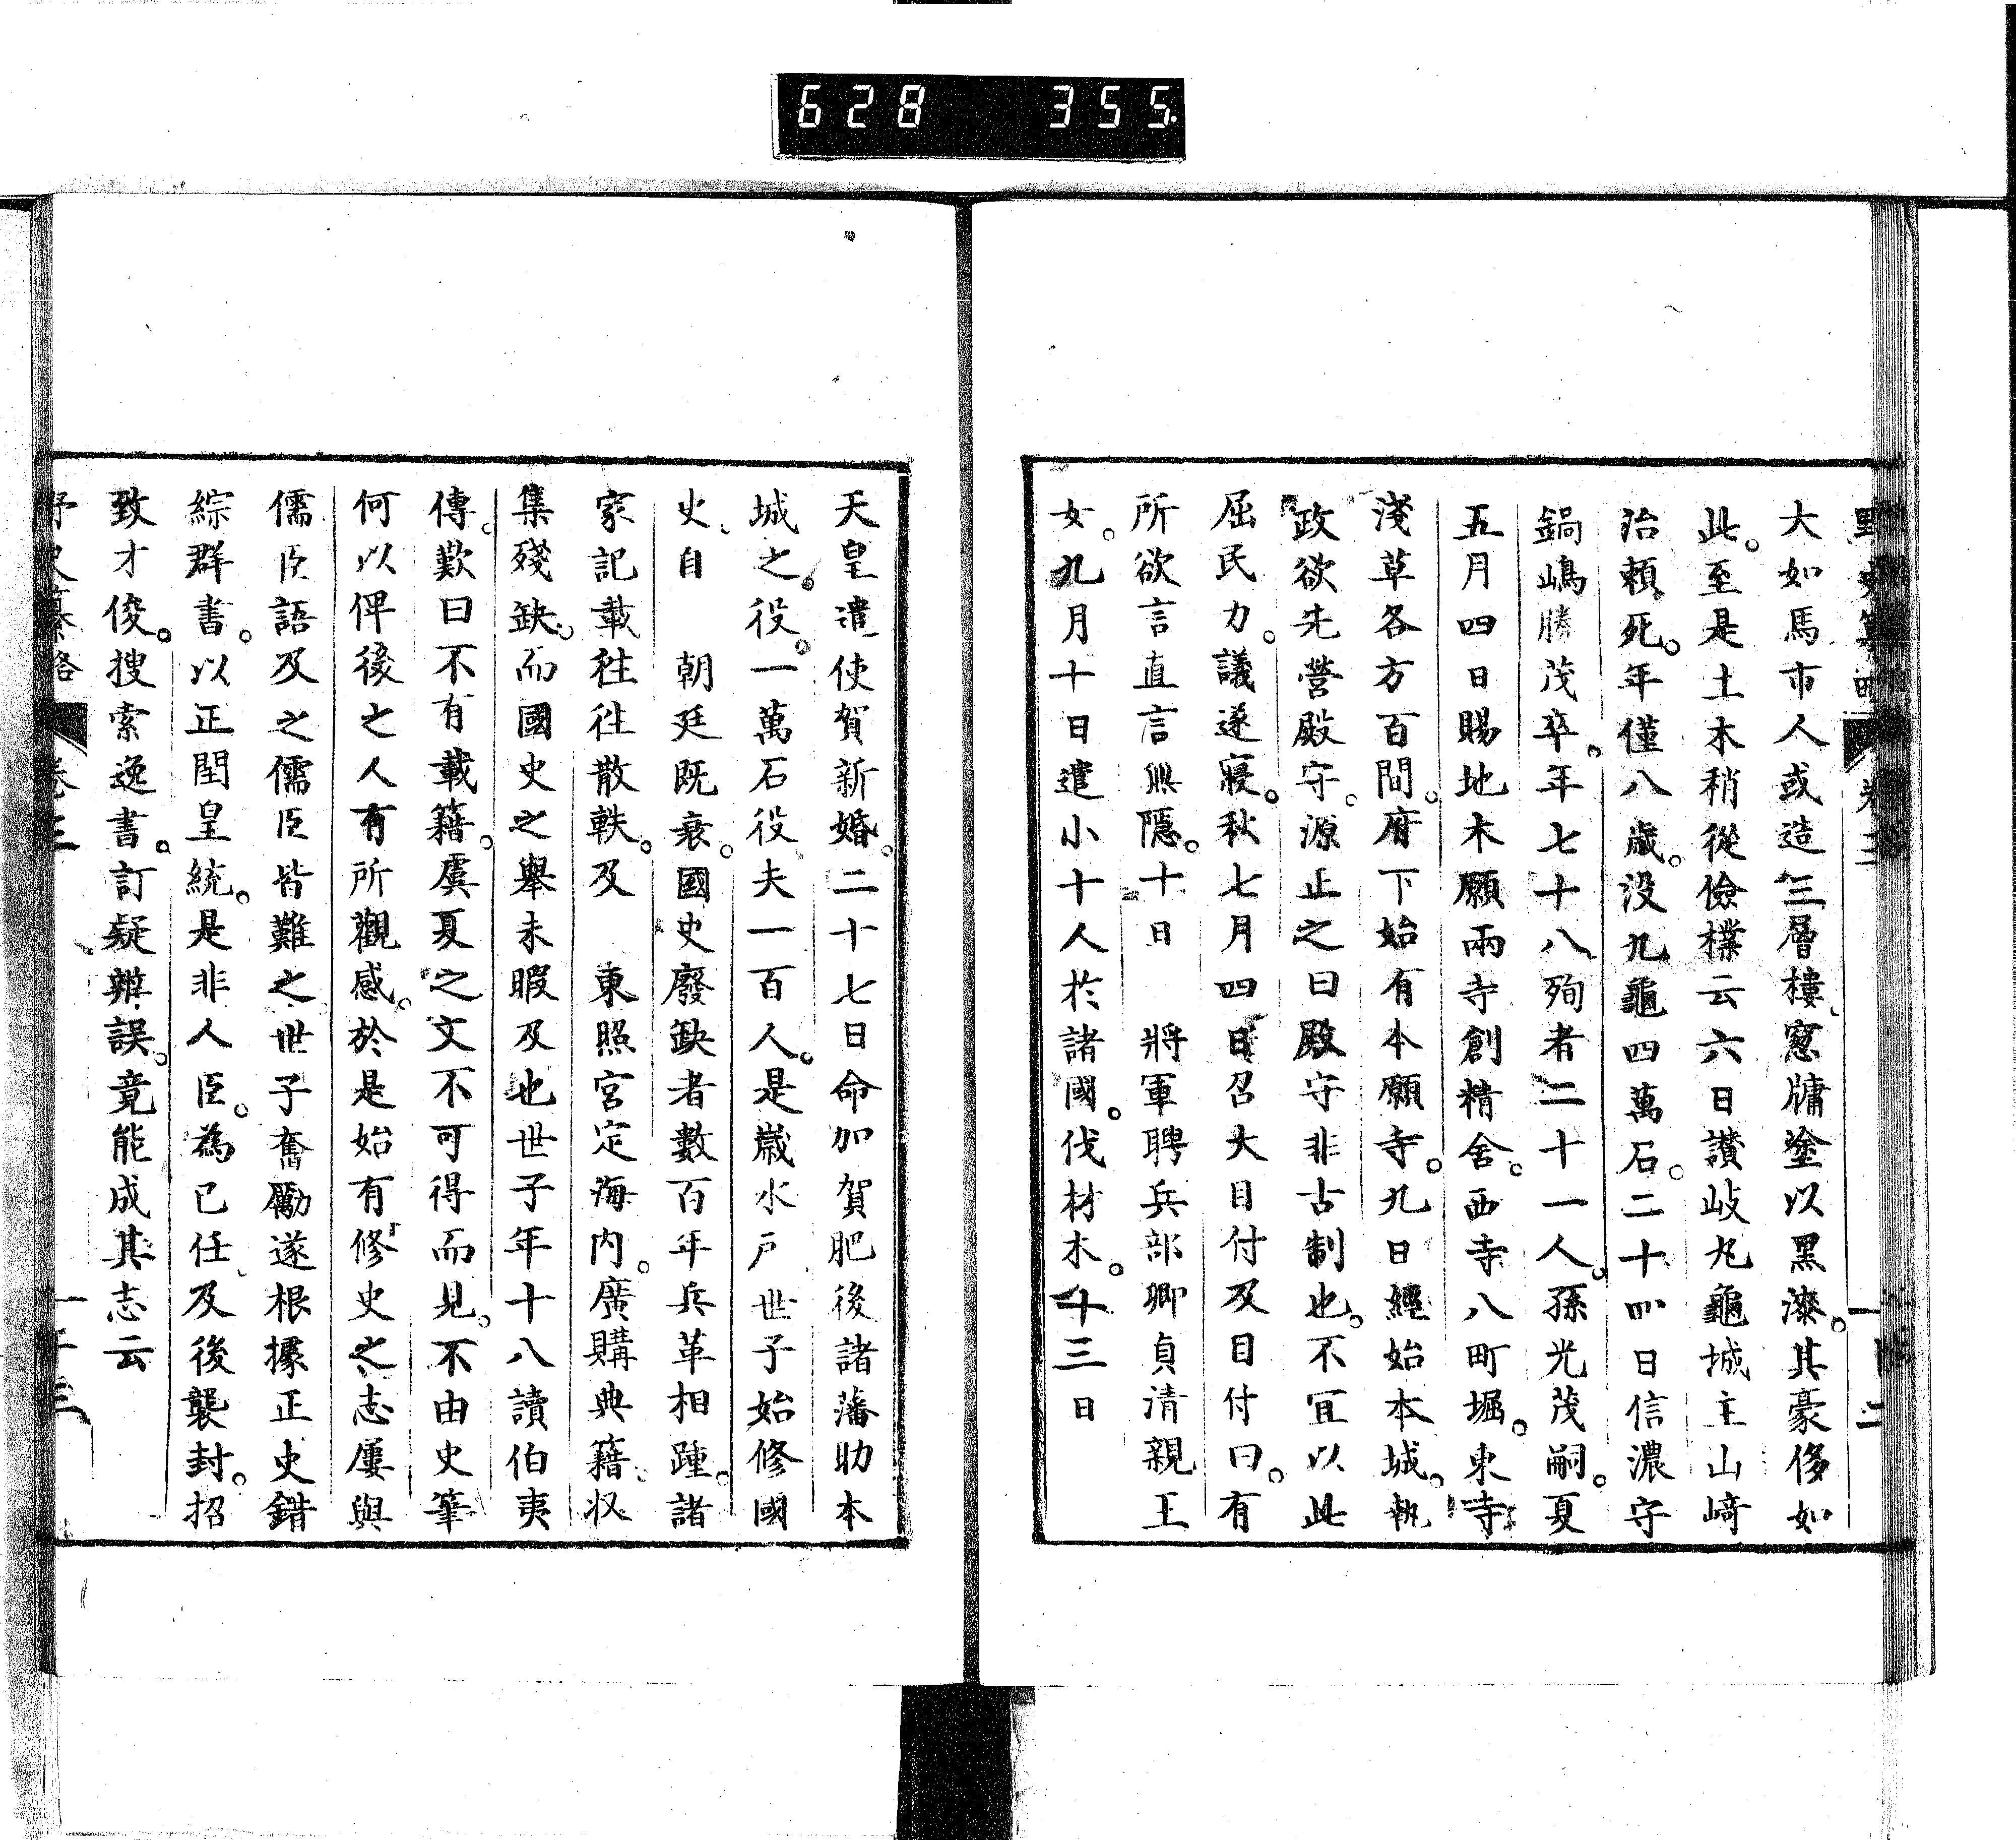 628 355.
大如馬市人或造三層樓、窓牗塗以黑漆。其豪侈如
此。至是土木稍從儉樸云六日讃岐丸龜城主山﨑
治頼死。年僅八歳。沒九龜四萬石。二十四日信濃守
鍋嶋勝茂卒。年七十八、殉者二十一人。孫光茂嗣。夏
五月四日賜地木願兩寺創精舍。西寺八町堀。東寺
淺草各方百間。府下始有本願寺。九日經始本城。執
政欲先營殿守。源正之曰殿守非古制也。不宜以此
屈民力。議遂寢。秋七月四日召大目付及目付曰。有
所欲言直言無隱。十日 將軍聘兵部卿貞清親王
女。九月十日遣小十人於諸國。伐材木。十三日
天皇遣使賀新婚。二十七日命加賀肥後諸藩助本
城之。役。一萬石役夫一百人。是歲水戸世子始修國
史、自 朝廷既衰。國史廢缺者數百年兵革相踵。諸
家記載徃徃散軼。及 東照宮定海内。廣購典籍、收
集殘缺。而國史之舉未暇及也世子年十八讀伯夷
傳。歎曰不有載籍。虞夏之文不可得而見。不由史筆
何以俾後之人有所觀感。於是始有修史之志屢與
儒臣語及之儒臣皆難之世子奮勵遂根據正史錯
綜群書。以正閏皇統。是非人臣。為己任、及後襲封。招
致才俊。搜索逸書。訂疑辨誤。竟能成其志云